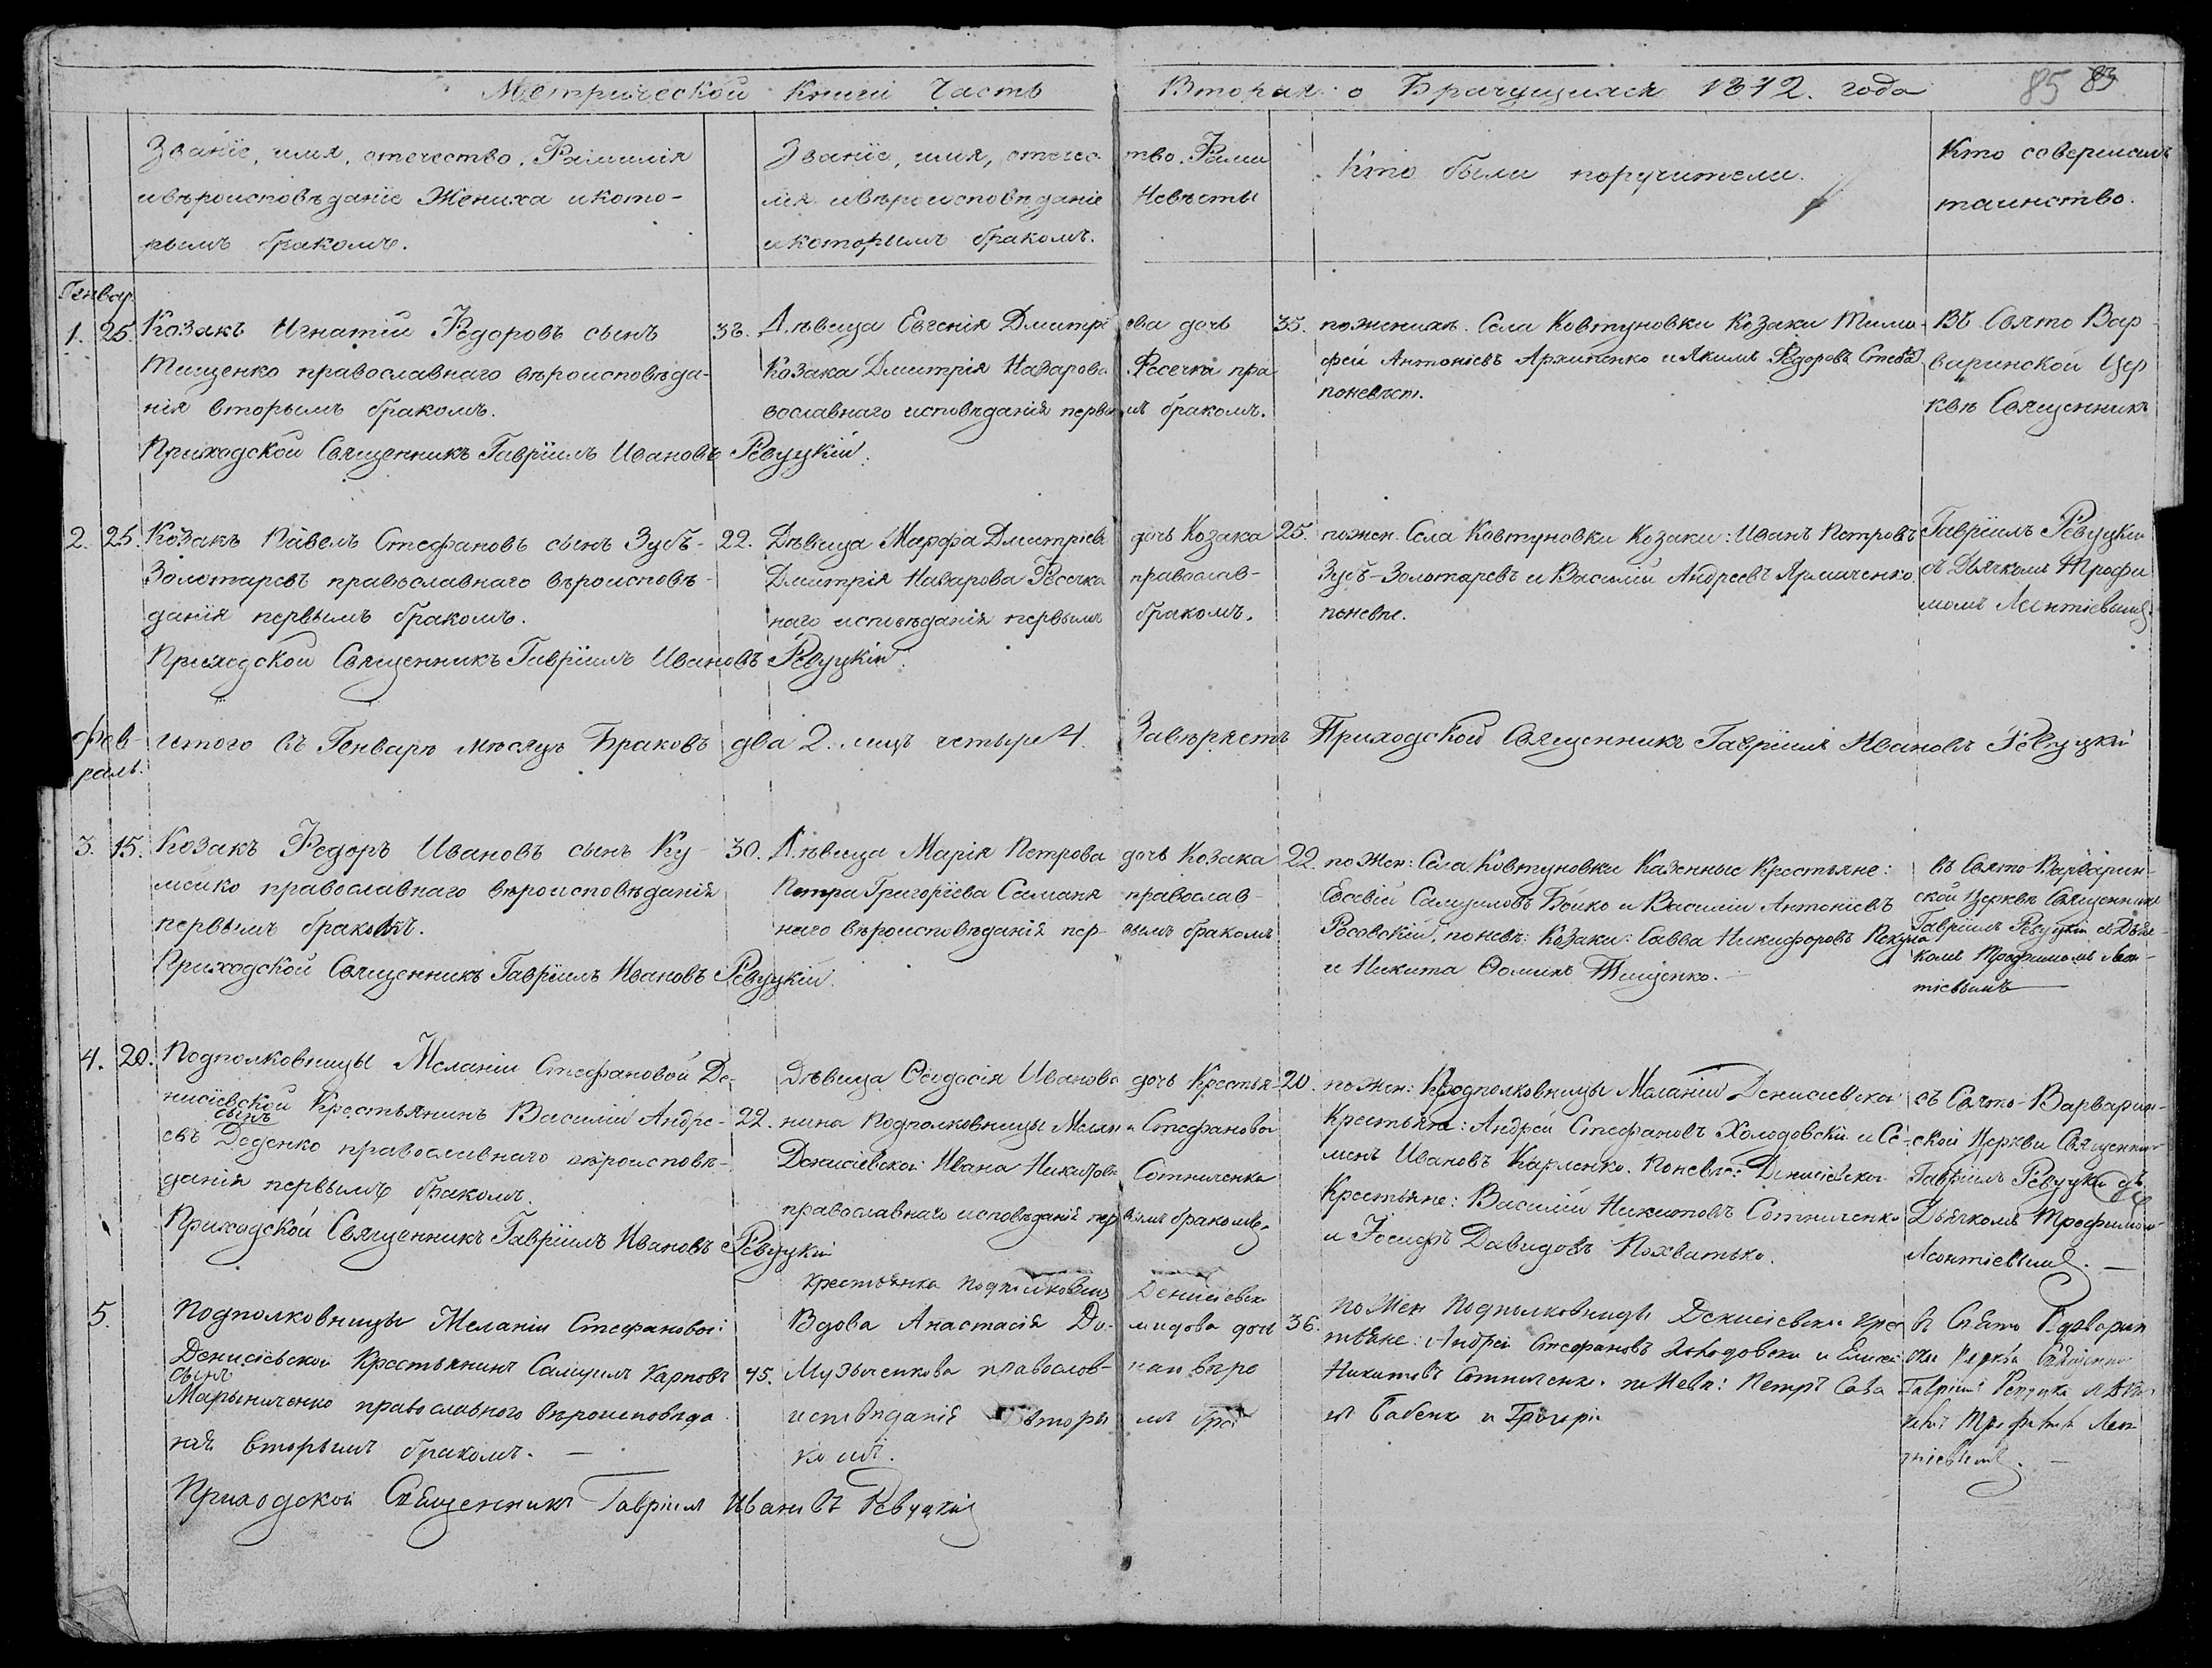 Метрической Книги Часть Вторая о Брачущихся 1842. года 85 83
Званіе, имя, отечество, Фамилія
ивѣроисповѣданіе Жениха икото-
рымъ бракомъ.
Званіе, имя, отечес тво. Фами
лія ивѣроисповѣданіе Невѣсты
икоторымъ бракомъ.
Кто были поручители.
Кто совершалъ
таинство.
Генвар.
1. 25. Козакъ Игнатій Федоровъ сынъ
Тищенко православнаго вѣроисповѣда-
нія вторымъ бракомъ.
Приходской Священникъ Гавріилъ Ивановъ Ревуцкій.
38. Дѣвица Евгенія Дмитрі ева дочь 35.
Козака Дмитрія Назарова Фесечка пра
вославнаго исповѣданія первы мъ бракомъ.
поженихѣ. Села Ковтуновки Козаки Тимо-
фей Антоніевъ Архипенко и Якимъ Федоровъ
поневѣст.
Въ Свято Вар
варинской Цер
квѣ Священникъ
2. 25. Козакъ Павелъ Стефановъ сынъ Зубъ-
Золотаревъ православнаго вѣроисповѣ-
данія первымъ бракомъ.
Приходской Священникъ Гавріилъ Ивановъ Ревуцкій.
22. Дѣвица Марфа Дмитріева дочь Козака 25.
Дмитрія Назарова Фесечка православ-
наго исповѣданія первымъ бракомъ.
пожен. Села Ковтуновки Козаки: Иванъ Петровъ
Зубъ-Золотаревъ и Василій Андреевъ Ярмаченко
поневѣ.
Гавріилъ Ревуцкій
съ Дьячкомъ Трофи
момъ Леонтіевымъ.
Фев-
раль.
итого въ Генварѣ мѣсяцѣ Браковъ два 2. лицъ четыре 4. Завѣряетъ Приходской Священникъ Гавріилъ Ивановъ Ревуцкій
3. 15. Козакъ Федоръ Ивановъ сынъ Ку-
мейко православнаго вѣроисповѣданія
первымъ бракомъ.
Приходской Священникъ Гавріилъ Ивановъ Ревуцкій.
30. Дѣвица Марія Петрова дочь Козака 22.
Петра Григоріева Саманя православ-
наго вѣроисповѣданія пер вымъ бракомъ
по Жен: Села Ковтуновки Казенные Крестьяне:
Евсевій Самуиловъ Бойко и Василій Антоніевъ
Росовскій, поневѣ: Козаки: Савва Никифоровъ
и Никита Ѳоминъ Тищенко.
въ Свято-Варварин-
ской Церквѣ Священникъ
Гавріилъ Ревуцкій съ Дья-
комъ Трофимомъ Леон-
тіевымъ
4. 20. Подполковницы Меланіи Стефановой Де-
нисіевской Крестьянинъ Василій Андре-
сынъ
евъ Деденко православнаго вѣроисповѣ-
данія первымъ бракомъ.
Приходской Священникъ Гавріилъ Ивановъ Ревуцкій
Дѣвица Ѳеодосія Иванова дочь Крестья- 20.
22. нина Подполковницы Мелан и Стефановой
Денисіевской Ивана Никитова Сотниченка
православнаго исповѣданія пер вымъ бракомъ.
пожен: Подполковницы Меланіи Денисіевской
Крестьяне: Андрей Стефановъ Холодовскій и Се-
менъ Ивановъ Карпенко. Поневѣ: Денисіевской
Крестьяне: Василій Никитовъ Сотниченко
и Іосифъ Давидовъ Похватько.
въ Свято-Варварин-
ской Церкви Священник
Гавріилъ Ревуцкій съ
Дьячкомъ Трофимомъ
Леонтіевымъ.
5. Подполковницы Меланіи Стефановой
Денисіевской Крестьянинъ Самуилъ Карповъ
сынъ
Марыниченко православного вѣроисповѣда
нія вторымъ бракомъ.
Приходской Священникъ Гавріилъ Ивановъ Ревуцкій
Крестьянка Подполковниц Денисіевск
Вдова Анастасія До- мидова дочь 36.
45. Музыченкова православ- наи вѣро
исповѣданія вторы мъ бра
комъ.
по Жен Подполковницы Денисіевски кре
стьяне: Андрей Стефановъ Холодовски и Елисей
Никитовъ Сотниченк. поневѣ: Петръ Сава
Бабенк и Григорі
въ Свято Варварин
ской Церкви Священник
Гавріилъ Ревуцкій
Трофимом Леон
тіевымъ.